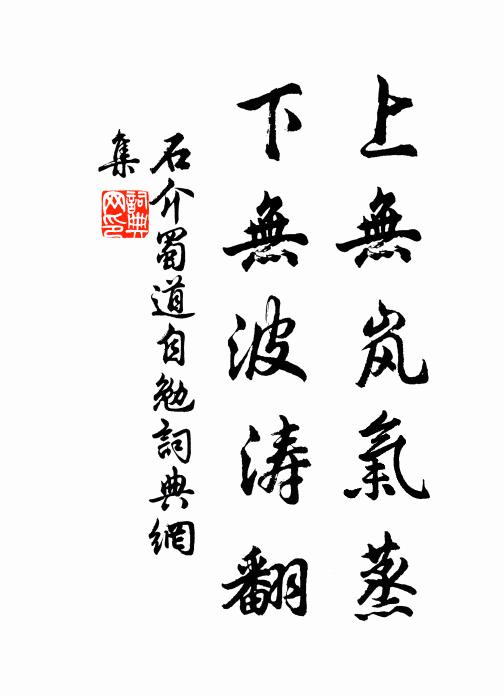 上無岚氣蒸
下無波涛翻
石介蜀道自勉詞典網
集
詞典
网印